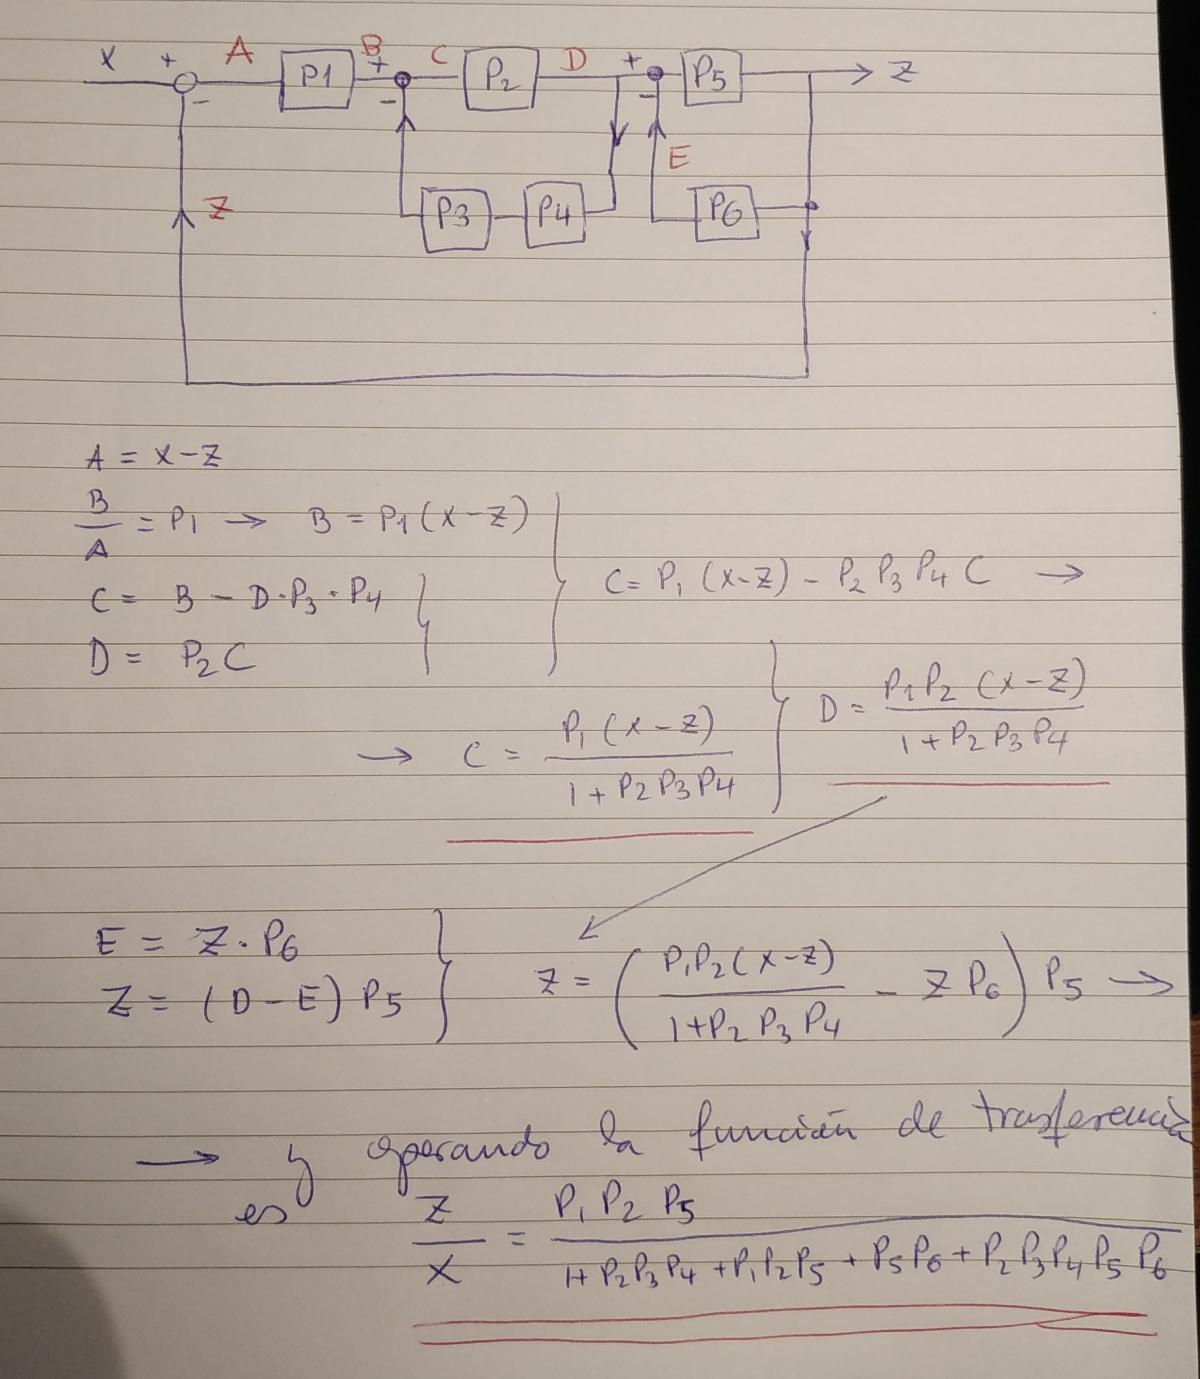 X + A P1 B + C P2 D + P5 Z
- - -
E
Z P3 P4 P6
A = X-Z
B/A = P1 → B = P1(X-Z)
C = P1(X-Z) - P2 P3 P4 C →
C = B - D·P3·P4
D = P2 C
D = P1 P2 (X-Z) / 1+P2 P3 P4
→ C = P1 (X-Z) / 1+P2 P3 P4
E = Z·P6
Z = (D-E) P5
Z = ( P1P2(X-Z) / 1+P2 P3 P4 - Z P6 ) P5 →
→ y operando la función de trasferencia
es
Z/X = P1 P2 P5 / 1+P2P3P4+P1P2P5+P5P6+P2P3P4P5P6